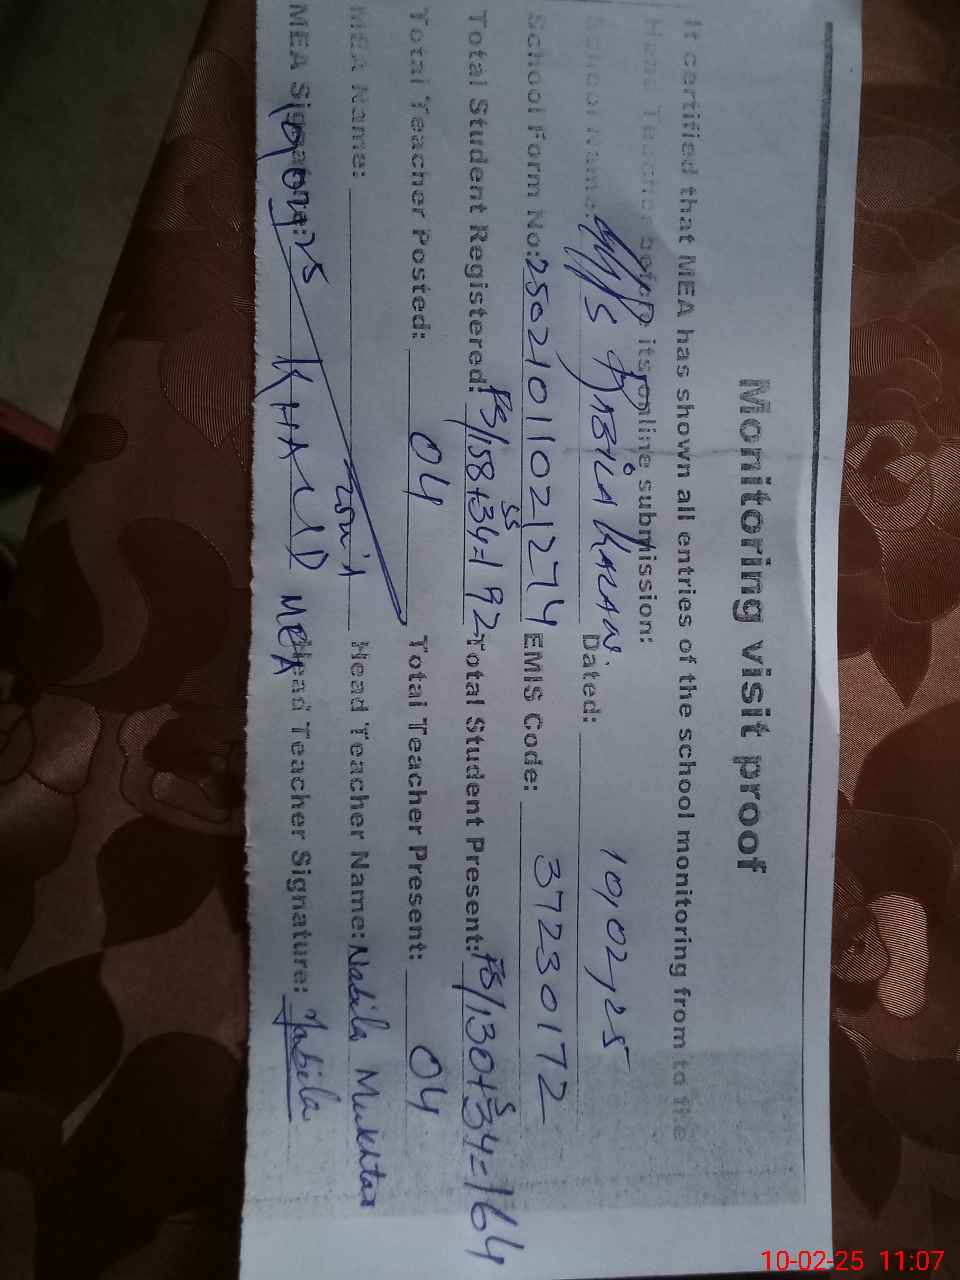 Monitoring visit proof
It certified that MEA has shown all entries of the school monitoring from to the
Head Teacher before its online submission:
School Name: KABILA KALAN Dated: 10,02,25
School Form No: 25021011021274 EMIS Code: 37230172
Total Student Registered: 158+34=192 Total Student Present: 130+34=164
Total Teacher Posted: 04 Total Teacher Present: 04
MEA Name: Head Teacher Name: Nabila Mukhtar
MEA Signature: KHALID MEA Head Teacher Signature: Nabila
10-02-25 11:07